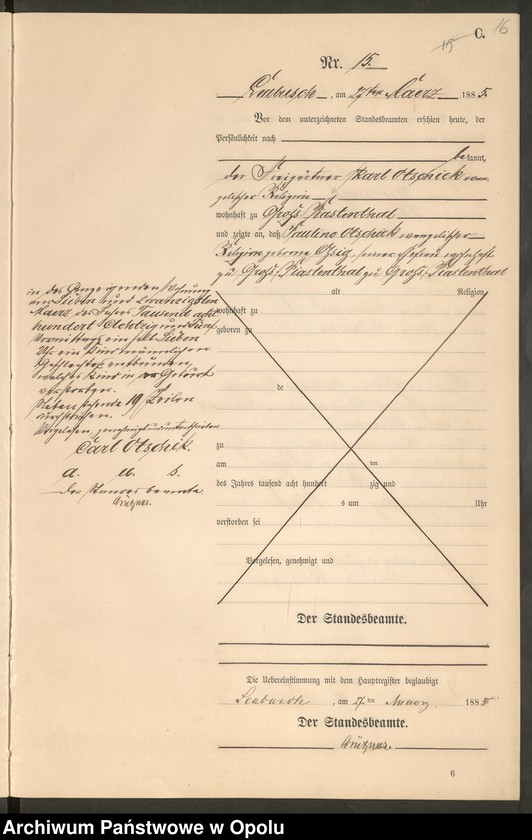 15 C. 16
Nr. 15.
Leubusch, am 27ten Maerz 1885.
Vor dem unterzeichneten Standesbeamten erschien heute, der
Persönlichkeit nach
bekannt,
der Freigärtner Karl Otschick evan-
gelischer Religion
wohnhaft zu Groß Piastenthal
und zeigte an, daß Pauline Otschick evangelischer
Religion geborne seiner Ehefrau wohnhaft
zu Groß Piastenthal zu Groß Piastenthal
in der Wohnung
am Sieben und zwanzigsten
Maerz des Jahres Tausend acht
hundert Achtzig und Fünf
Vormittags um halb Sieben
Uhr ein Kind männlichen
Geschlechts entbunden,
welches Kind in der Geburt
verstorben.
Nebenstehende 19 Zeilen
durchstrichen.
Vorgelesen, genehmigt und unterschrieben
Carl Otschik.
a. u. s.
Der Standesbeamte
alt Religion,
wohnhaft zu
geboren zu
de
zu
am ten
des Jahres tausend acht hundert zig und
s um Uhr
verstorben sei
Vorgelesen, genehmigt und
Der Standesbeamte.
Die Uebereinstimmung mit dem Hauptregister beglaubigt
Leubusch, am 27.ten Maerz 1885
Der Standesbeamte.
6
Archiwum Państwowe w Opolu